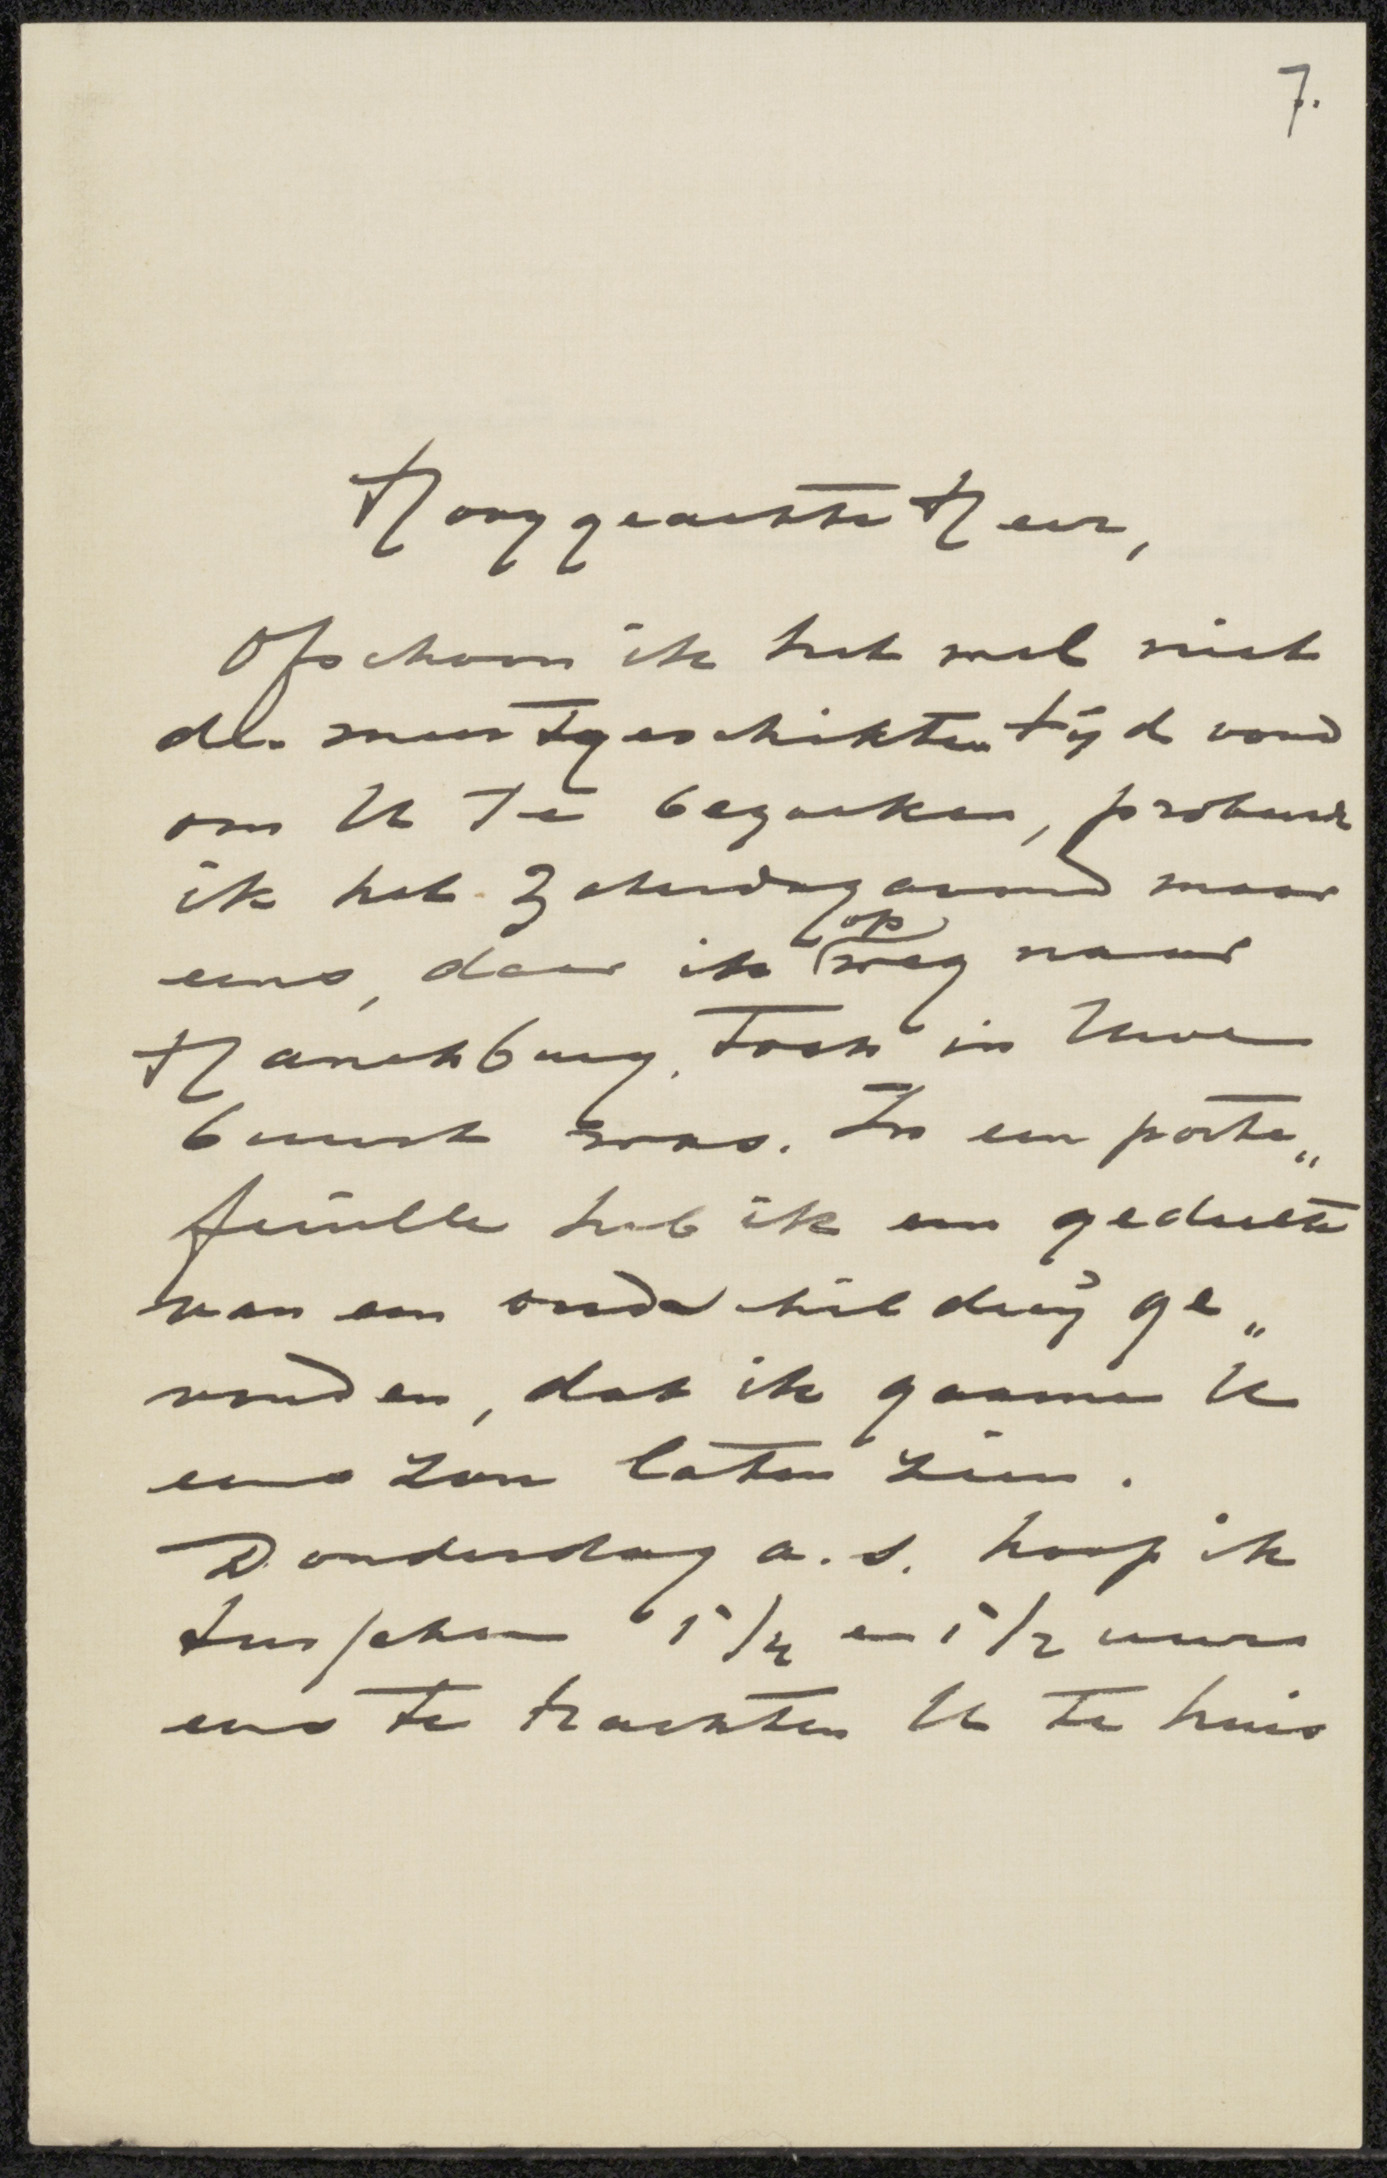 7.
Hooggeachte Heer,
Ofschoon ik het wel niet
de meestgeschikten tijd vond
om U te bezoeken, probeerde
ik het Zaterdagavond maar
eens, daar ik op weg naar
toch in Uwe
buurt was. In een porte„
feuille heb ik een gedeelte
van een schilderij ge„
vonden, dat ik gaarne U
eens zou laten zien.
Donderdag a.s. hoop ik
tusschen 5 1/4 en 5 1/2 uur
eens te trachten U te huis